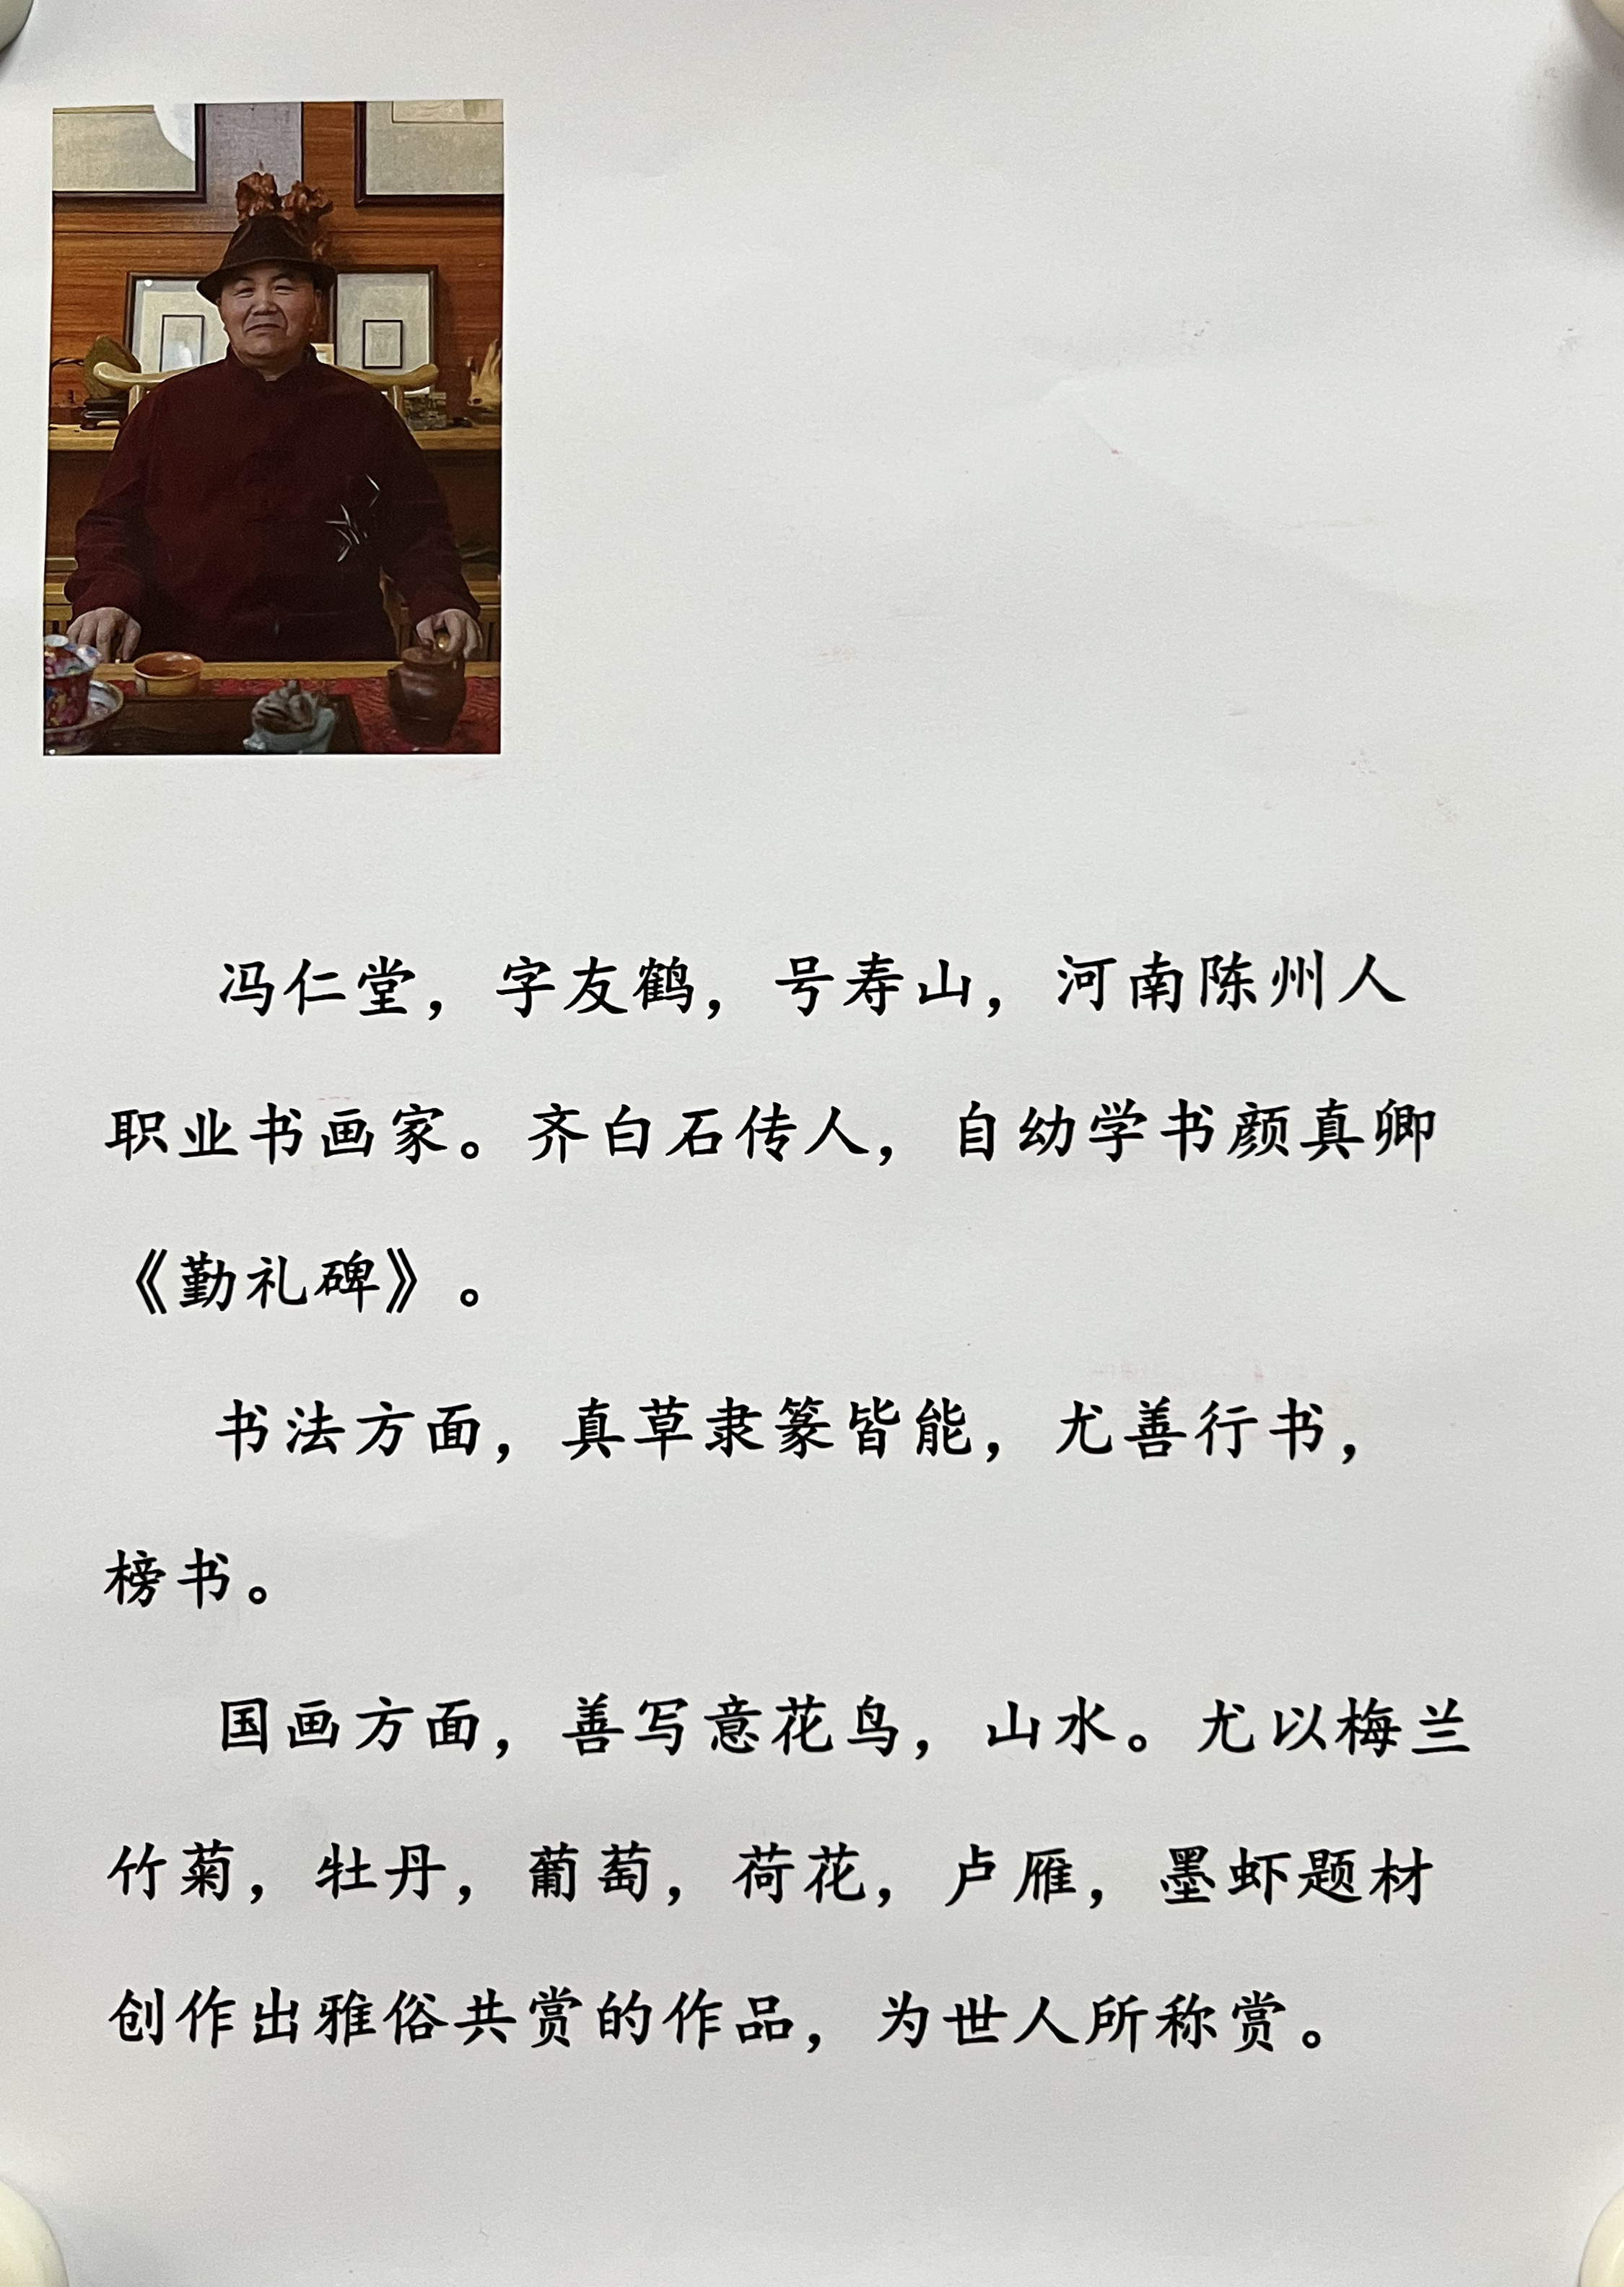 冯仁堂，字友鹤，号寿山，河南陈州人
职业书画家。齐白石传人，自幼学书颜真卿
《勤礼碑》。
书法方面，真草隶篆皆能，尤善行书，
榜书。
国画方面，善写意花鸟，山水。尤以梅兰
竹菊，牡丹，葡萄，荷花，卢雁，墨虾题材
创作出雅俗共赏的作品，为世人所称赏。